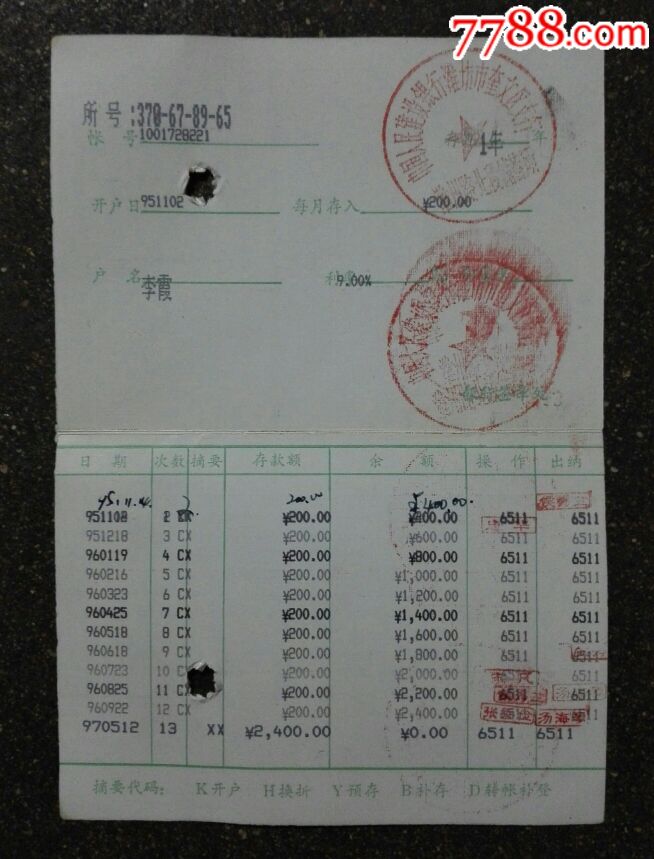 7788.com
所号:370-67-89-65
帐 号1001728221
1年 年
开户日951102 每月存入 ¥200.00
户 名李霞 利率9.00%
日 期 次数 摘要 存款额 余 额 操 作 出 纳
200.00 ¥400.00
951102 2 ¥200.00 6511 6511
951218 3 CX ¥200.00 ¥600.00 6511 6511
960119 4 CX ¥200.00 ¥800.00 6511 6511
960216 5 CX ¥200.00 ¥1,000.00 6511 6511
960323 6 CX ¥200.00 ¥1,200.00 6511 6511
960425 7 CX ¥200.00 ¥1,400.00 6511 6511
960518 8 CX ¥200.00 ¥1,600.00 6511 6511
960618 9 CX ¥200.00 ¥1,800.00 6511 6511
960723 10 ¥200.00 ¥2,000.00 6511 6511
960825 11 ¥200.00 ¥2,200.00 6511 6511
960922 12 CX ¥200.00 ¥2,400.00 6511 6511
970512 13 XX ¥2,400.00 ¥0.00 6511 6511
摘要代码: K开户 H换折 Y预存 B补存 D转帐补登
中国人民建设银行潍坊市奎文区支行